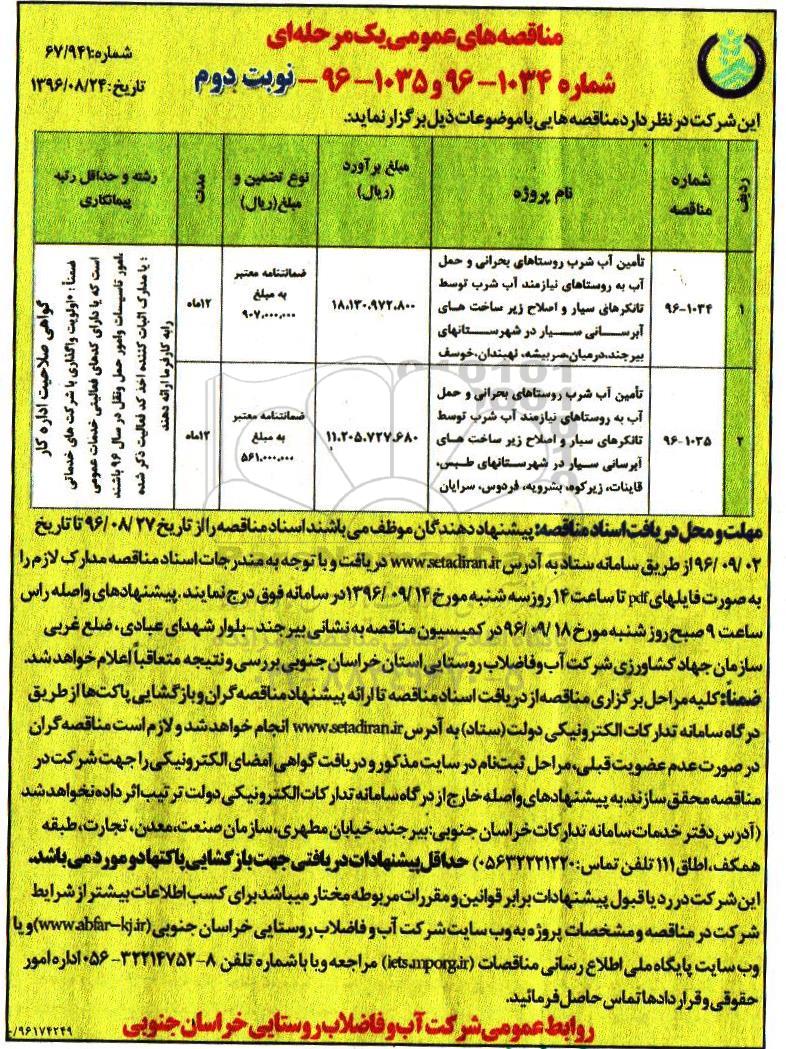 مناقصه های عمومی یک مرحله ای
شماره ۱۰۳۴-۹۶ و ۱۰۳۵-۹۶ - نوبت دوم
شماره: ۶۷/۹۴۱
تاریخ: ۱۳۹۶/۰۸/۲۴
این شرکت در نظر دارد مناقصه هایی با موضوعات ذیل برگزار نماید.
ردیف
شماره مناقصه
نام پروژه
مبلغ برآورد (ریال)
نوع تضمین و مبلغ (ریال)
مدت
رشته و حداقل رتبه پیمانکاری
۱
۹۶-۱۰۳۴
تأمین آب شرب روستاهای بحرانی و حمل
آب به روستاهای نیازمند آب شرب توسط
تانکرهای سیار و اصلاح زیر ساخت های
آبرسانی سیار در شهرستانهای
بیرجند، درمیان، سربیشه، نهبندان، خوسف
۱۸.۱۳۰.۹۷۲.۸۰۰
ضمانتنامه معتبر
به مبلغ
۹۰۷.۰۰۰.۰۰۰
۱۲ماه
۲
۹۶-۱۰۳۵
تأمین آب شرب روستاهای بحرانی و حمل
آب به روستاهای نیازمند آب شرب توسط
تانکرهای سیار و اصلاح زیر ساخت های
آبرسانی سیار در شهرستانهای طبس،
قاینات، زیرکوه، بشرویه، فردوس، سرایان
۱۱.۲۰۵.۷۲۷.۶۸۰
ضمانتنامه معتبر
به مبلغ
۵۶۱.۰۰۰.۰۰۰
۱۲ماه
گواهی صلاحیت اداره کار
ضمناً: اولویت واگذاری با شرکت های خدماتی
است که یا دارای کدهای فعالیتی خدمات عمومی
امور تاسیسات و امور حمل ونقل در سال ۹۶ باشند
؛ یا مدارک اثبات کننده اخذ کد فعالیت ذکر شده
را به کارفرما ارائه دهند
مهلت و محل دریافت اسناد مناقصه: پیشنهاد دهندگان موظف می باشند اسناد مناقصه را از تاریخ ۹۶/۰۸/۲۷ تا تاریخ
۹۶/۰۹/۰۲ از طریق سامانه ستاد به آدرس www.setadiran.ir دریافت و با توجه به مندرجات اسناد مناقصه مدارک لازم را
به صورت فایلهای pdf تا ساعت ۱۴ روز سه شنبه مورخ ۱۳۹۶/۰۹/۱۴ در سامانه فوق درج نمایند. پیشنهادهای واصله راس
ساعت ۹ صبح روز شنبه مورخ ۹۶/۰۹/۱۸ در کمیسیون مناقصه به نشانی بیرجند - بلوار شهدای عبادی، ضلع غربی
سازمان جهاد کشاورزی شرکت آب و فاضلاب روستایی استان خراسان جنوبی بررسی و نتیجه متعاقباً اعلام خواهد شد.
ضمناً: کلیه مراحل برگزاری مناقصه از دریافت اسناد مناقصه تا ارائه پیشنهاد مناقصه گران و بازگشایی پاکت ها از طریق
درگاه سامانه تدارکات الکترونیکی دولت (ستاد) به آدرس www.setadiran.ir انجام خواهد شد و لازم است مناقصه گران
در صورت عدم عضویت قبلی، مراحل ثبت نام در سایت مذکور و دریافت گواهی امضای الکترونیکی را جهت شرکت در
مناقصه محقق سازند. به پیشنهادهای واصله خارج از درگاه سامانه تدارکات الکترونیکی دولت ترتیب اثر داده نخواهد شد
(آدرس دفتر خدمات سامانه تدارکات خراسان جنوبی: بیرجند، خیابان مطهری، سازمان صنعت، معدن، تجارت، طبقه
همکف، اطاق ۱۱۱ تلفن تماس: ۰۵۶۳۲۲۲۱۲۲۰) حداقل پیشنهادات دریافتی جهت بازگشایی پاکتها دو مورد می باشد.
این شرکت در رد یا قبول پیشنهادات برابر قوانین و مقررات مربوطه مختار میباشد برای کسب اطلاعات بیشتر از شرایط
شرکت در مناقصه و مشخصات پروژه به وب سایت شرکت آب و فاضلاب روستایی خراسان جنوبی (www.abfar-kj.ir) و یا
وب سایت پایگاه ملی اطلاع رسانی مناقصات (iets.mporg.ir) مراجعه و یا با شماره تلفن ۸-۳۲۲۱۴۷۵۲-۰۵۶ اداره امور
حقوقی و قراردادها تماس حاصل فرمائید.
روابط عمومی شرکت آب و فاضلاب روستایی خراسان جنوبی
/۹۶۱۷۴۲۴۹